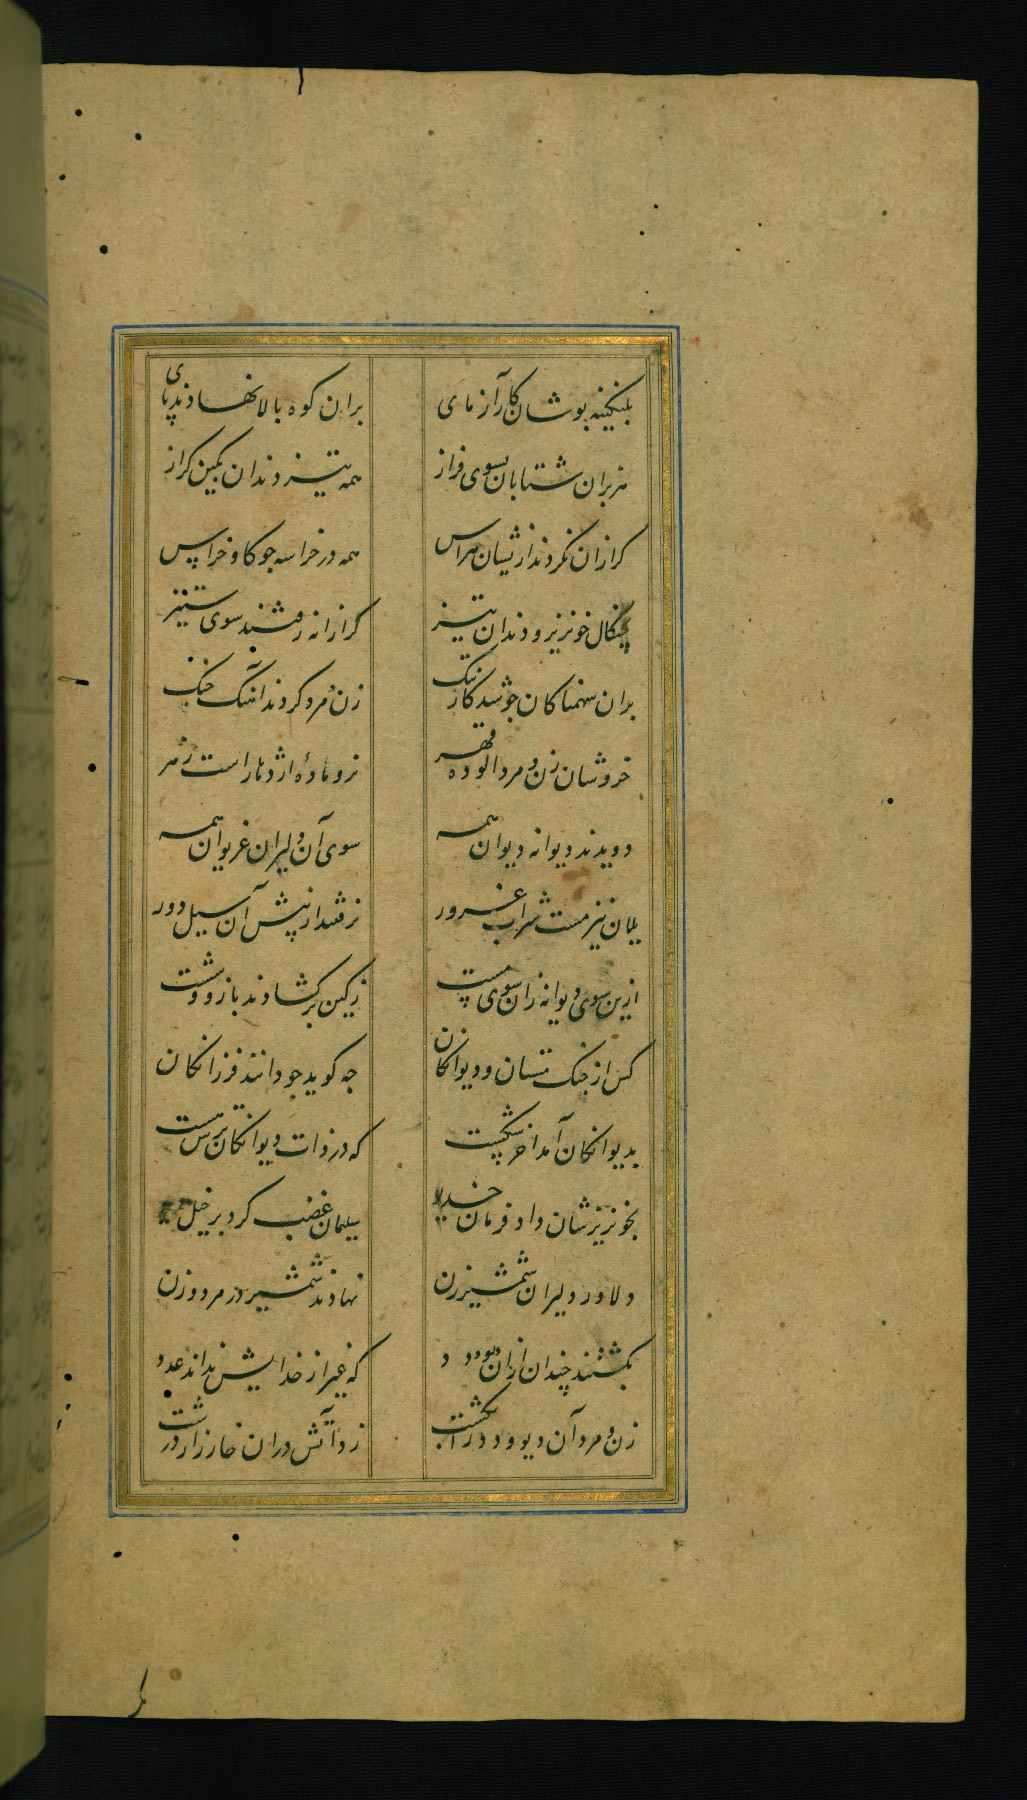 پلنگینه پوشان کارآزمای
بران کوه بالا نهادند پای
هزبران شتابان بسوی فراز
همه تیز دندان بکین گراز
کرازان نکردند ازیشان هراس
همه در خراسه جو کاو خراس
بچنگال خونریز و دندان تیز
گرازانه رفتند سوی ستیز
بران سهمناکان جو شد کار تنک
زن و مرد کردند آهنک جنک
خروشان زن و مرد الوده قهر
نر و مادهٔ اژدها راست زهر
دویدند دیوانه دیوان همه
سوی آن دلیران غریوان همه
یلان نیز مست شراب غرور
نرفتند از پیش آن سیل دور
ازین سوی دیوانه زان سوی مست
زکین برکشادند بازو و شست
کس از جنک مستان و دیوانکان
جه کوید جو دانند فرزانکان
بدیوانکان آمد اخر شکست
که در ذات دیوانکان ترس هست
بخونریزشان داد فرمان خدیو
سلیمان غضب کرد بر خیل
دلاور دلیران شمشیرزن
نهادند شمشیر در مرد و زن
بکشتند چندان ازان دیو و دد
که غیر از خدایش نداند عدد
زن و مرد آن دیو و دد را بکشت
زد آتش دران خارزار درشت